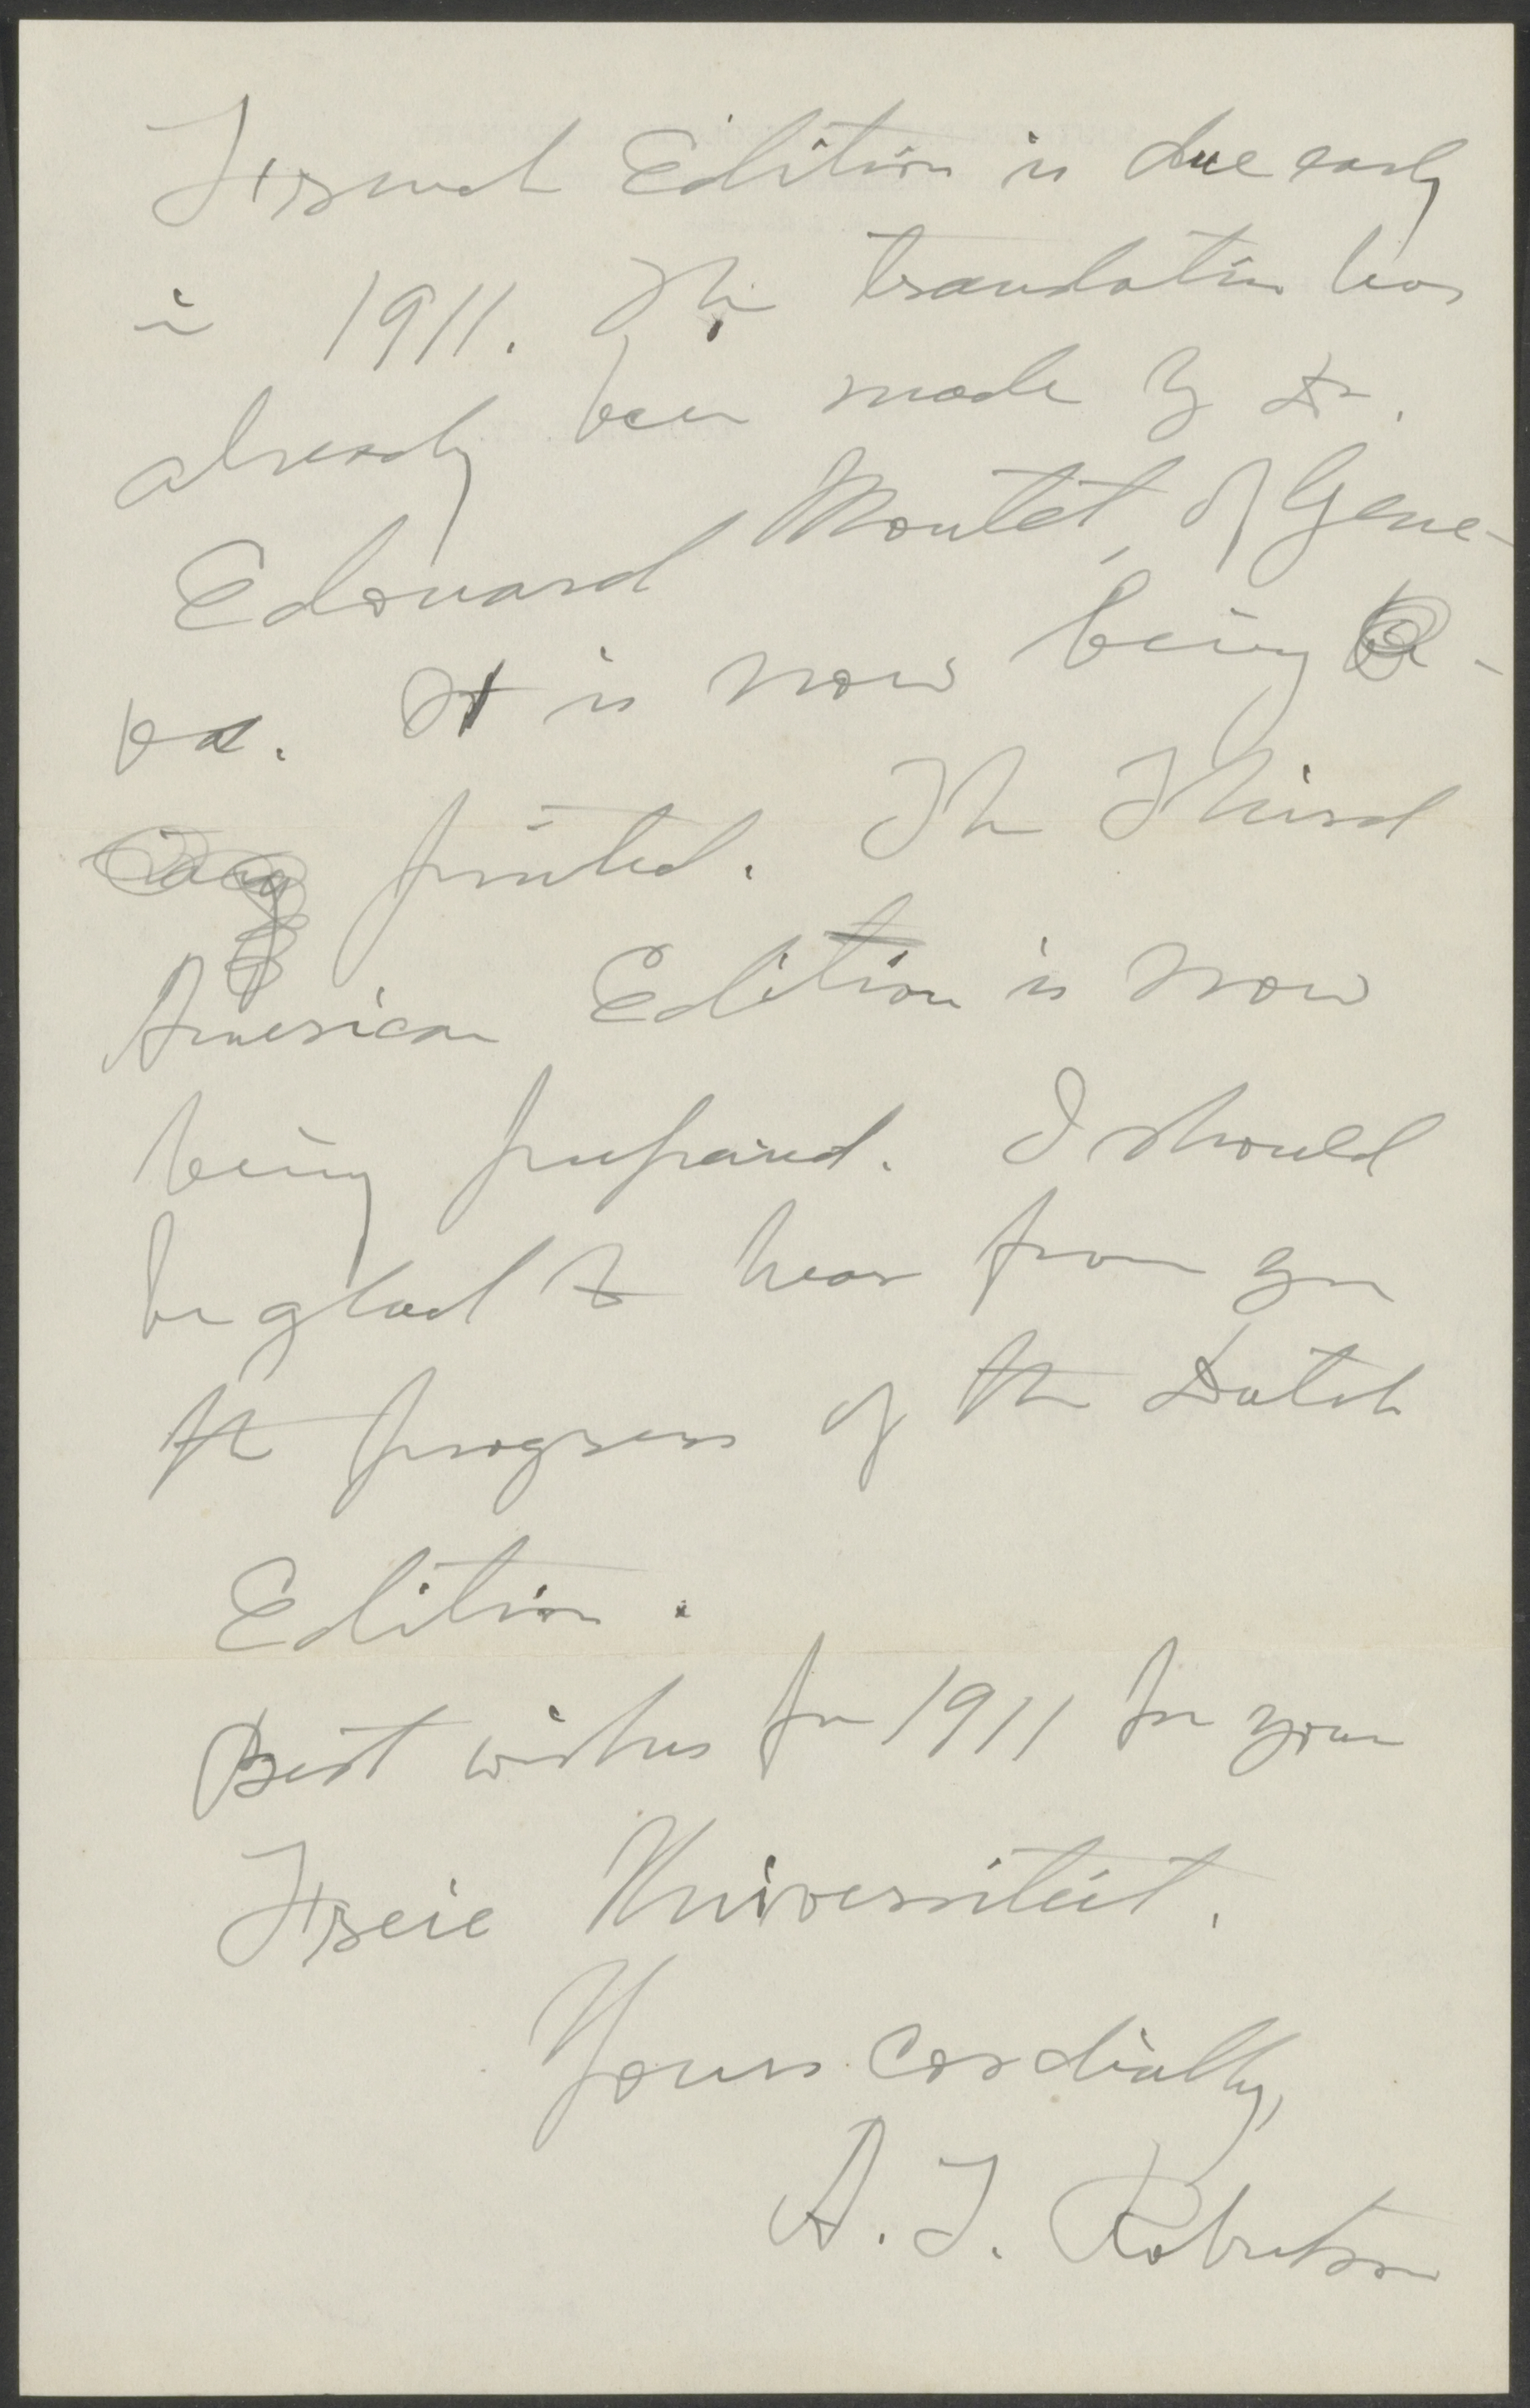 French Edition is due early
in 1911. The translation has
already been made by Dr.
Edouard Montet, of Gene-
va. It is now being
printed. The Third
American Edition is now
being prepared. I should
be glad to hear from you
the progress of the Dutch
Edition.
Best wishes for 1911 for your
Freie Universiteit.
Yours cordially,
A. T. Robertson